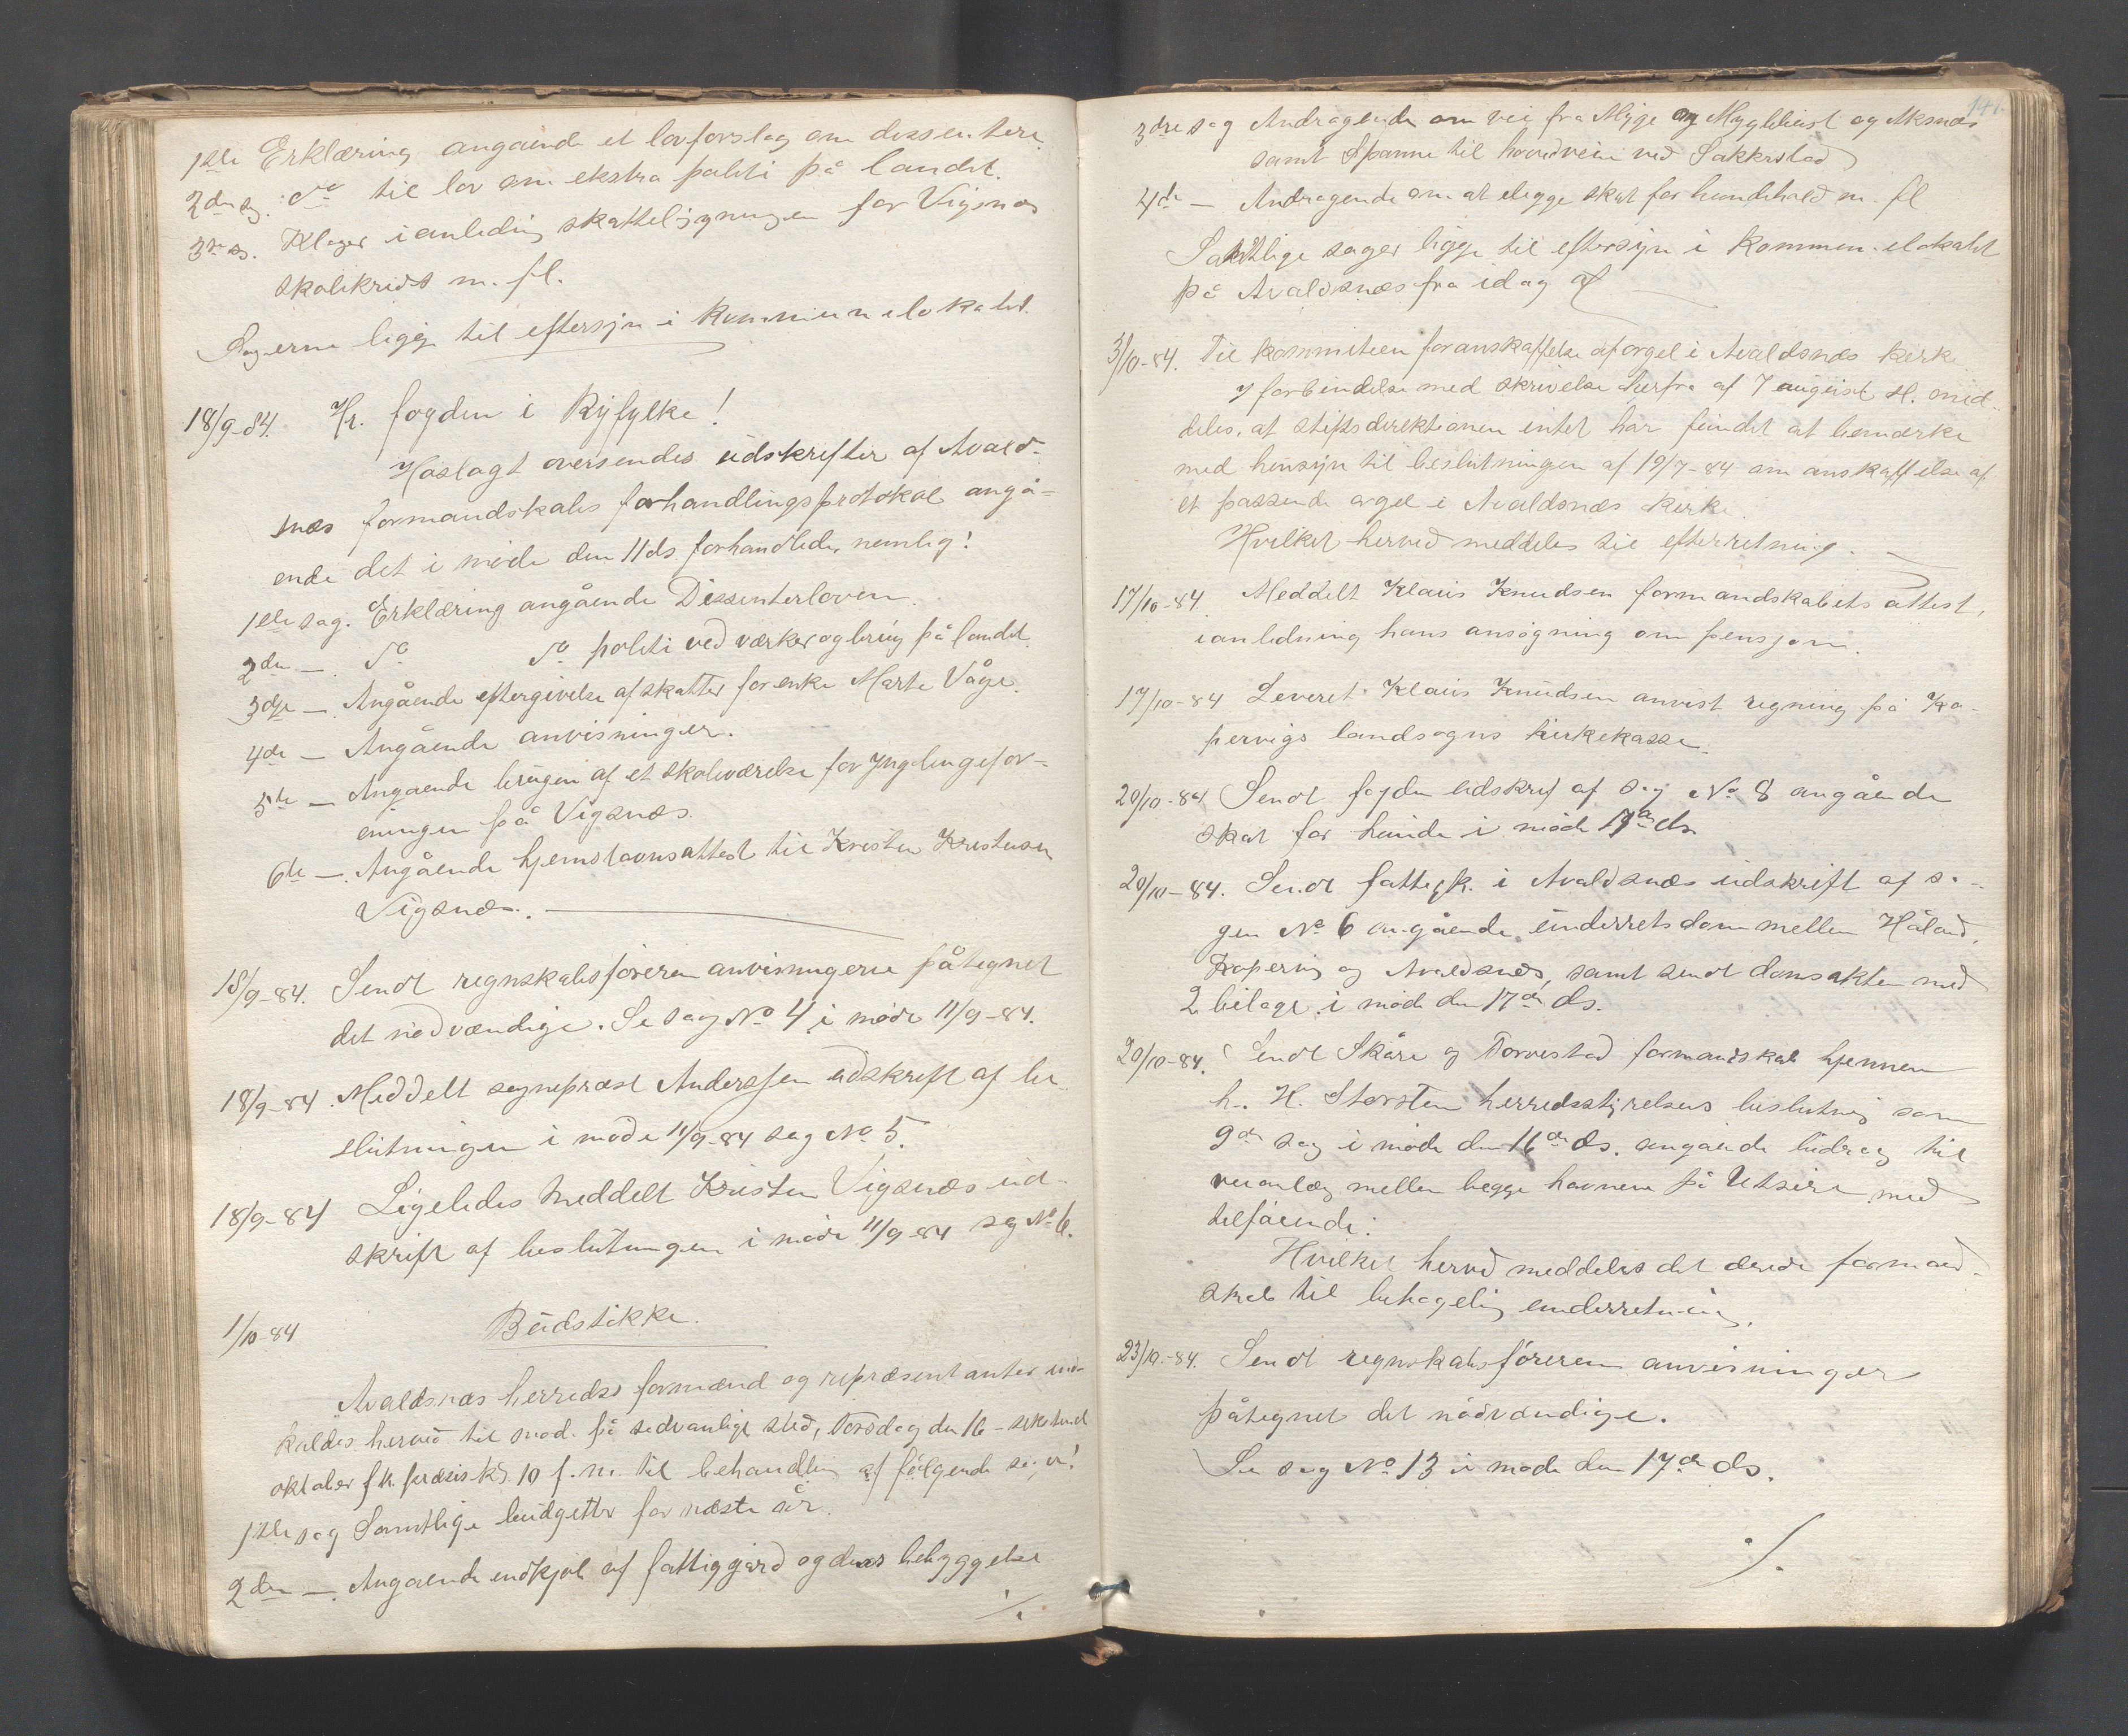 1ste Erklæring angående et lovforslag om dissentere
2den sag. do til lov om ekstra politi på landet.
3die sag. Klager i anledning skatteligningen for Vigsnæs
skolekreds m. fl.
Sagerne ligge til eftersyn i kommunelokalet.
18/9-84. Hr. fogden i Ryfylke!
Hoslagt oversendes udskrifter af Avald-
snæs formandskabs forhandlingsprotokol angå-
ende det i møde den 11 ds. forhandlede, nemlig:
1ste sag. Erklæring angående Dissenterloven.
2den — do do politi ved værker og brug på landet.
3die — Angående eftergivelse af skatter for enke Marte Våge.
4de — Angående anvisninger.
5te — Angående brugen af et skoleværelse for Ynglingefor-
eningen på Vigsnæs.
6te — Angående hjemstavnsattest til Kristen Kristensen
Vigsnæs.
18/9-84. Sendt regnskabsføreren anvisningerne påtegnet
det nødvændige. Se sag No 4 i møde 11/9-84.
18/9-84. Meddelt sognepræst Anderssen udskrift af be-
slutningen i møde 11/9-84 sag No 5.
18/9-84 Ligeledes meddelt Kristen Vigsnæs ud-
skrift af beslutningen i møde 11/9-84 sag No 6.
1/10-84 Budstikke.
Avaldsnæs herreds formænd og repræsentanter ind-
kaldes herved til mød. på sedvanlige sted, Torsdag den 16 - sekstend
oktober f.k. præsis kl. 10 f.m. til behandling af følgende sager!
1ste sag Samtlige budgetter for næste år.
2den — Angaaende indkjøb af fattiggård og dens bebyggelse
./.
141.
3die sag Andragende om vei fra Myge og Mygbleist og Aksnæs
samt Spanne til hovedveien ved Sakkestad
4de — Andragende om at ilegge skat for hundehold m. fl
Samtlige sager ligge til eftersyn i kommunelokalet
på Avaldsnæs fra idag af
3/10-84. Til kommiteen for anskaffelse af orgel i Avaldsnæs kirke
I forbindelse med skrivelse herfra af 7 august d. med-
deles, at stiftsdirektionen intet har fundet at bemærke
med hensyn til beslutningen af 19/7-84 om anskaffelse af
et passende orgel i Avaldsnæs kirke.
Hvilket herved meddeles til efterretning.
17/10-84. Meddelt Klaus Knudsen formandskabets attest,
i anledning hans ansøgning om pensjon.
17/10-84 Leveret Klaus Knudsen anvist regning på Ko-
pervigs landsogns kirkekasse.
20/10-84 Sendt fogden udskrift af sag No 8 angående
skat for hunde i møde 17de ds.
20/10-84. Sendt fattigk. i Avaldsnæs udskrift af sa-
gen No 6 angående underretsdom mellem Håland,
Kopervig og Avaldsnæs, samt sendt domsakten med
2 bilage i møde den 17de ds.
20/10-84. Sendt Skåre og Torvestad formandskab hjennem
h. H. Storsten herredsstyrelsens beslutning som
9de sag i møde den 16de ds. angående bidrag til
veianlæg mellem begge havnene på Utsire med
tilføiende:
Hvilket herved meddeles det ærede formand-
skab til behagelig underretning.
23/10-84. Sendt regnskabsføreren anvisninger
påtegnet det nødvændige.
Se sag No 13 i møde den 17de ds.
./.